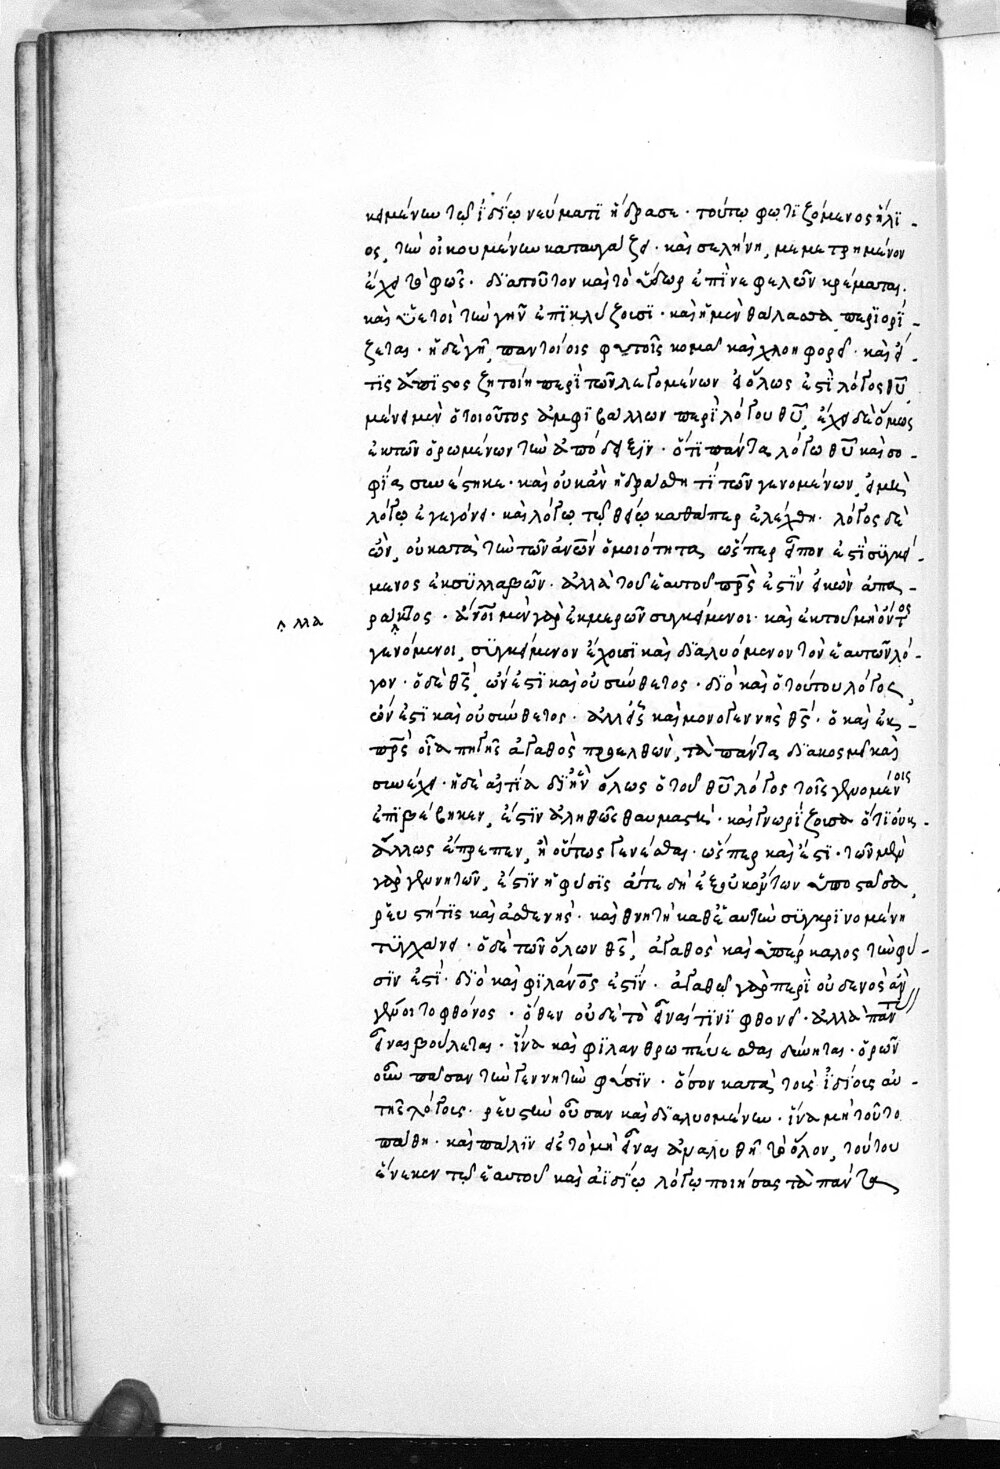 κειμένην τῷ ἰδίῳ νεύματι ἥδρασε· τούτῳ φωτιζόμενος ἥλι-
ος, τὴν οἰκουμένην καταυγάζει· καὶ σελήνη, μεμετρημένον
ἔχει τὸ φῶς· διὰ τοῦτον καὶ τὸ ὕδωρ ἐπὶ νεφελῶν κρέμαται,
καὶ ὑετοὶ τὴν γῆν ἐπικλύζουσι· καὶ ἡ μὲν θάλασσα περιορί-
ζεται· ἡ δὲ γῆ, παντοίοις φυτοῖς κομᾷ καὶ χλοηφορεῖ· καὶ εἴ
τις ἄπιστος ζητοίη περὶ τῶν λεγομένων εἰ ὅλως ἐστὶ λόγος θῦ,
μαίνει μὲν ὁ τοιοῦτος ἀμφιβάλλων περὶ λόγου θῦ, ἔχει δὲ ὅμως
ἐκ τῶν ὁρωμένων τὴν ἀπόδειξιν· ὅτι πάντα λόγῳ θῦ καὶ σο-
φίᾳ συνέστηκε· καὶ οὐκ ἂν ἡδράσθη τὶ τῶν γενομένων, εἰ μὴ
λόγῳ ἐγεγόνει· καὶ λόγῳ τῷ θείῳ καθάπερ ἐλέχθη· λόγος δὲ
ὢν, οὐ κατὰ τὴν τῶν ἀνῶν ὁμοιότητα, ὥσπερ εἶπον ἐστὶ συγκεί-
μενος ἐκ συλλαβῶν· ἀλλὰ τοῦ ἑαυτοῦ πρς ἐστὶν εἰκὼν ἀπα-
ράκτος· ἄνοι μὲν γὰρ ἐκ μερῶν συγκείμενοι· καὶ ἐκ τοῦ μὴ ὄντος
^ λλα
γενόμενοι, συγκείμενον ἔχουσι καὶ διαλυόμενον τὸν ἑαυτῶν λό-
γον· ὁ δὲ θς, ὤν ἐστι καὶ οὐ σύνθετος· διὸ καὶ ὁ τούτου λόγος,
ὤν ἐστι καὶ οὐ σύνθετος· ἀλλ' εἷς καὶ μονογεννὴς θς· ὁ καὶ ἐκ
πρς οἷα πηγῆς ἀγαθὸς προελθὼν, τὰ πάντα διακοσμεῖ καὶ
συνέχει· ἡ δὲ αἰτία δι' ἣν ὅλως ὁ τοῦ θῦ λόγος τοῖς γενομένοις
ἐπιβέβηκεν, ἐστὶν ἀληθῶς θαυμαστὴ· καὶ γνωρίζουσα ὅτι οὐκ
ἄλλως ἔπρεπεν, ἢ οὕτως γενέσθαι· ὥσπερ καὶ ἔστι· τῶν μὲν
γὰρ γενητῶν, ἐστὶν ἡ φύσις ἅτε δὴ ἐξ οὐκ ὄντων ὑποστᾶσα,
ῥευστή τις καὶ ἀσθενής· καὶ θνητὴ καθ' ἑαυτὴν συγκρινομένη
τυγχάνει· ὁ δὲ τῶν ὅλων θς, ἀγαθὸς καὶ ὑπέρκαλος τὴν φύ-
σιν ἐστί· διὸ καὶ φιλάνος ἐστίν· ἀγαθῷ γὰρ περὶ οὐδενὸς ἂν
γένοιτο φθόνος· ὅθεν οὐδὲ τὸ εἶναί τινι φθονεῖ· ἀλλὰ πάντας
εἶναι βούλεται· ἵνα καὶ φιλανθρωπεύεσθαι δύνηται· ὁρῶν
οὖν πᾶσαν τὴν γεννητὴν φύσιν· ὅσον κατὰ τοὺς ἰδίους αὐ-
τῆς λόγους· ῥευστὴν οὖσαν καὶ διαλυομένην· ἵνα μὴ τοῦτο
πάθη· καὶ πάλιν εἰς τὸ μὴ εἶναι ἀναλυθῆ τὸ ὅλον, τούτου
ἕνεκεν τῷ ἑαυτοῦ καὶ ἀϊδίῳ λόγῳ ποιήσας τὰ πάντα